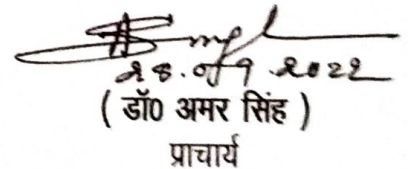 2022
( डॉ0 अमर सिंह )
प्राचार्य